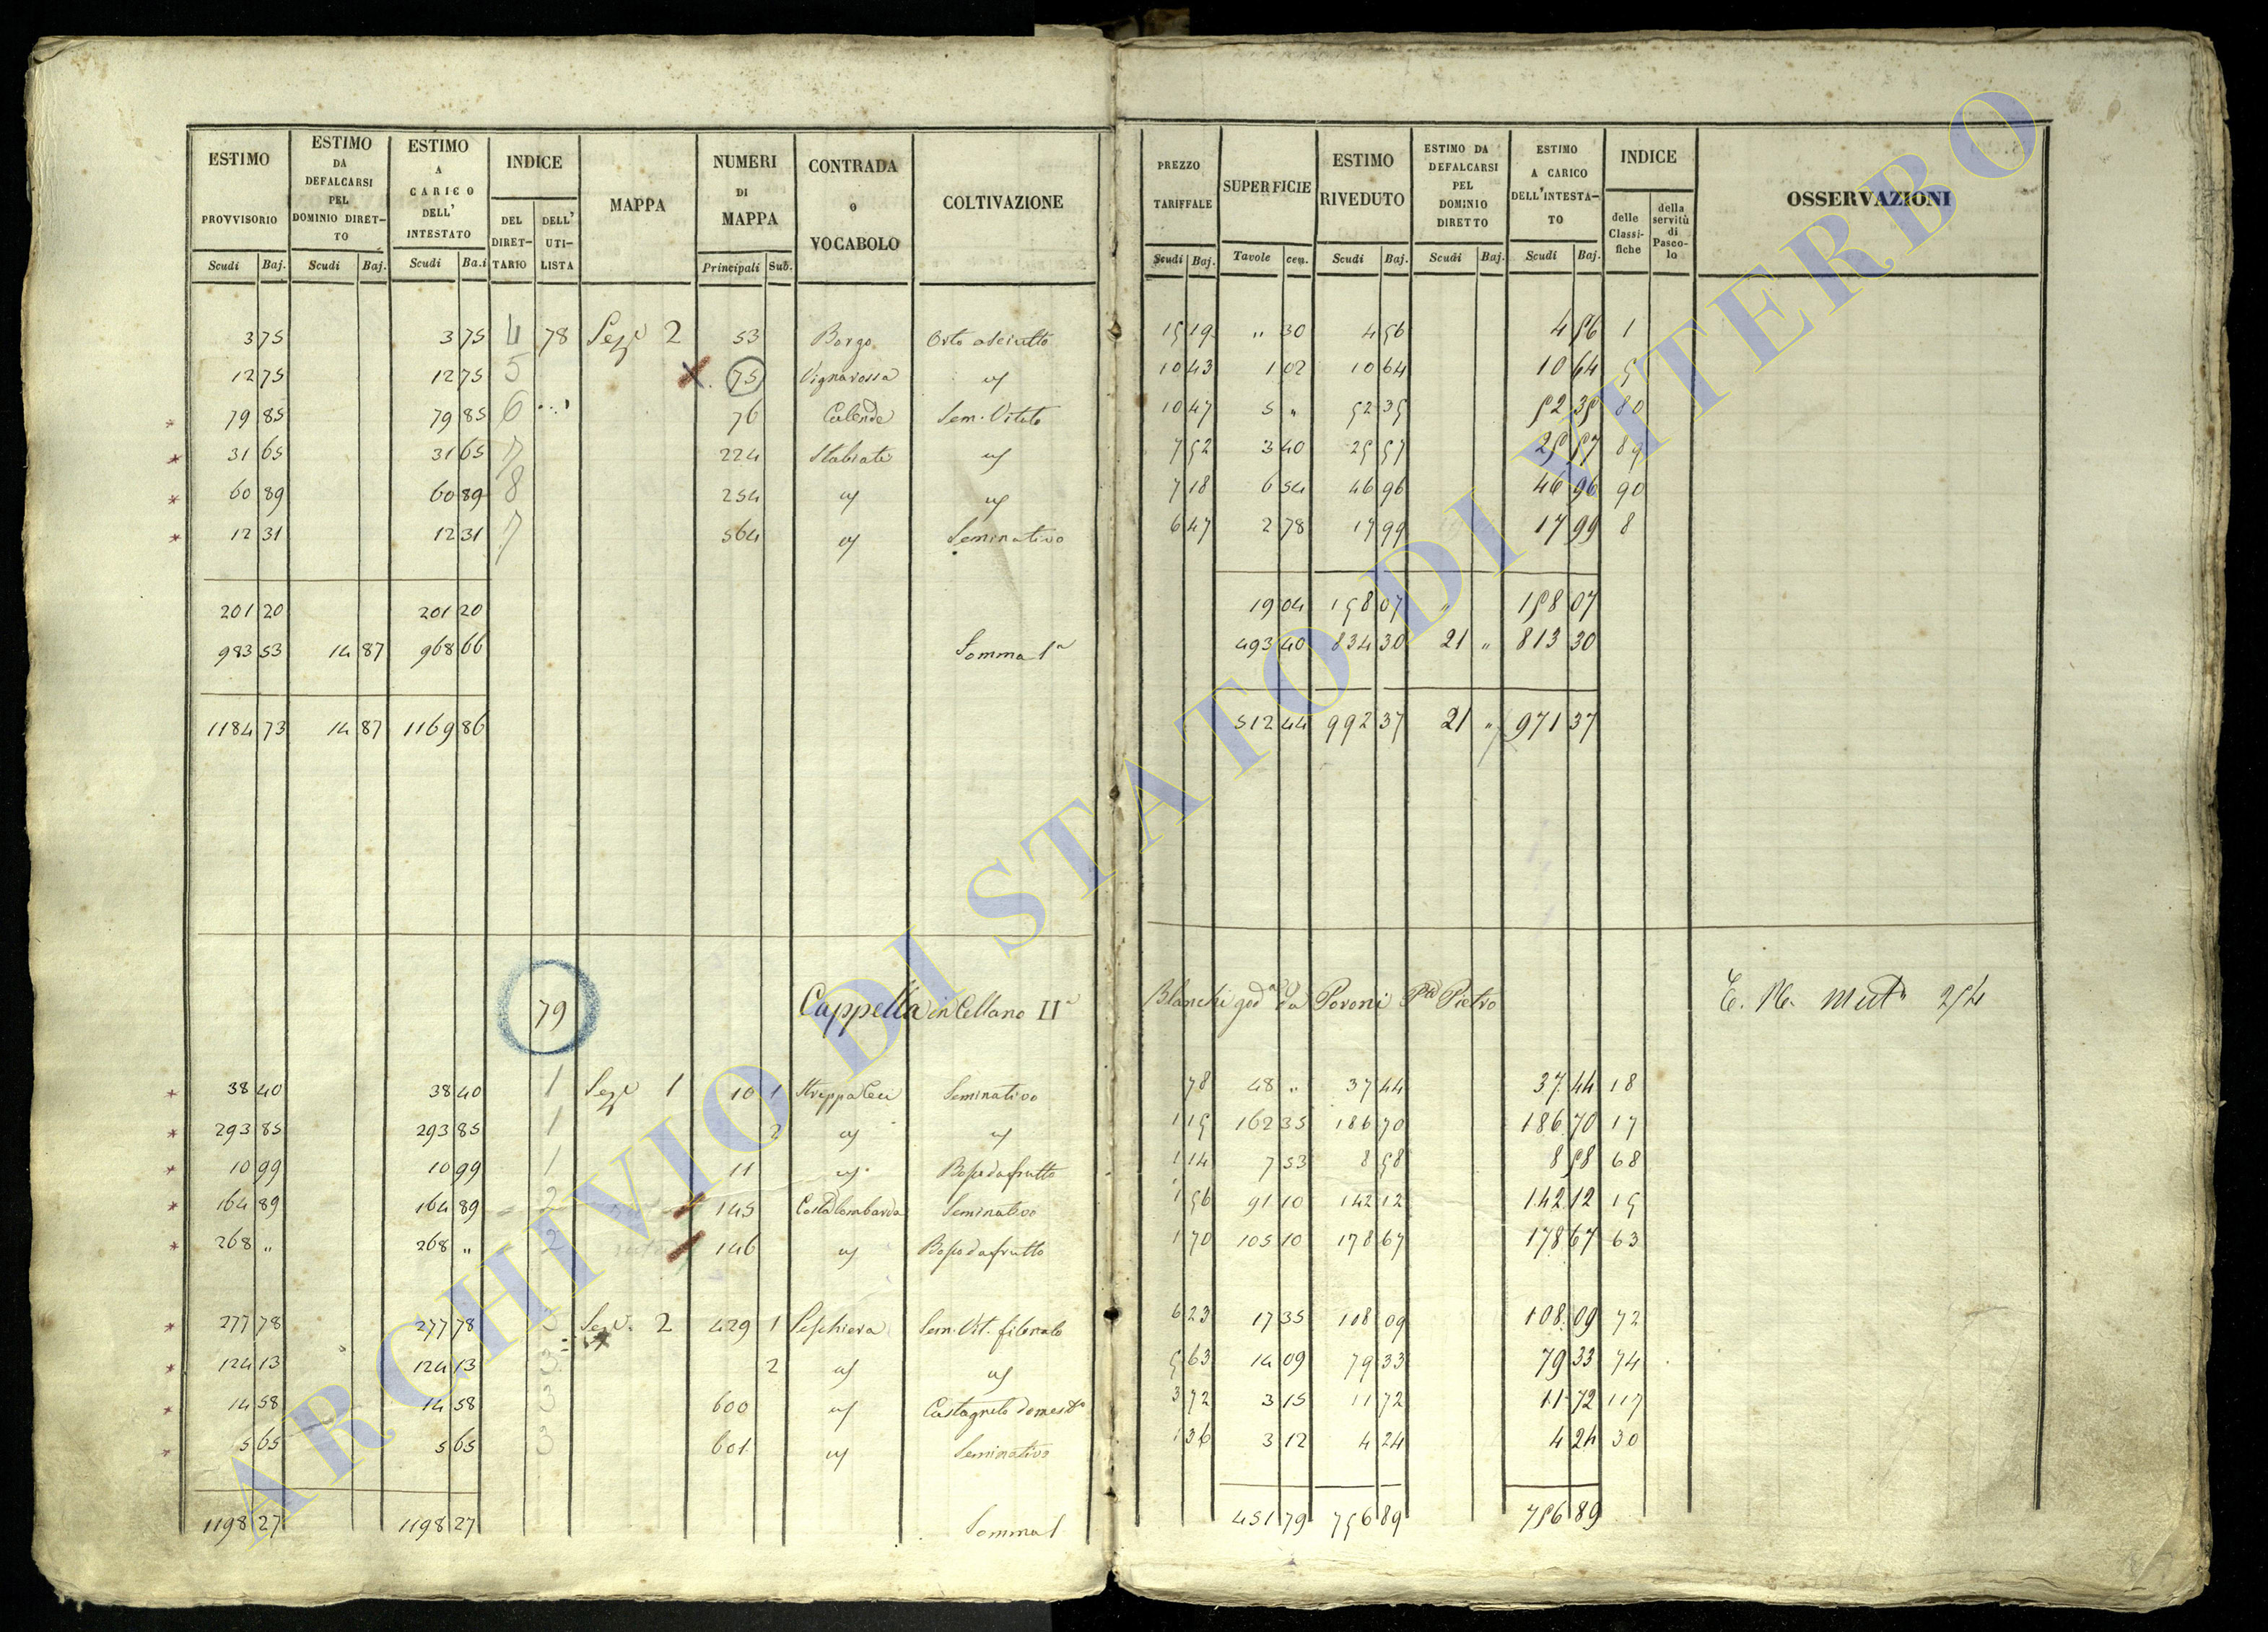 ESTIMO PROVVISORIO | ESTIMO DA DEFALCARSI PEL DOMINIO DIRET-TO | ESTIMO A CARICO DELL' INTESTATO | INDICE | MAPPA | NUMERI DI MAPPA | CONTRADA o VOCABOLO | COLTIVAZIONE | PREZZO TARIFFALE | SUPERFICIE | ESTIMO RIVEDUTO | ESTIMO DA DEFALCARSI PEL DOMINIO DIRETTO | ESTIMO A CARICO DELL'INTESTA-TO | INDICE | OSSERVAZIONI
Scudi Baj. | Scudi Baj. | Scudi Ba.i | DEL DIRET-TARIO | DELL' UTI-LISTA | Principali Sub. | Scudi Baj. | Tavole cen. | Scudi Baj. | Scudi Baj. | Scudi Baj. | delle Classi-fiche | della servitù di Pasco-lo
3 75 3 75 4 78 Sezˢ 2 53 Borgo Orto asciutto 15 19 " 30 4 56 4 56 1
12 75 12 75 5 75 Vignarossa 10 43 1 02 10 64 10 64 5
79 85 79 85 6 76 Calende Sem. Vitato 10 47 5 " 52 35 52 35 80
31 65 31 65 7 224 Stabiate 7 52 3 40 25 57 25 57 89
60 89 60 89 8 254 7 18 6 54 46 96 46 96 90
12 31 12 31 7 564 Seminativo 6 47 2 78 17 99 17 99 8
201 20 201 20 19 04 158 07 " 158 07
983 53 14 87 968 66 Somma 1ª 493 40 834 30 21 " 813 30
1184 73 14 87 1169 86 512 44 992 37 21 " 971 37
79 Cappella in Cellano IIª Blanchi godª da Poroni Pietro Mutª 254
38 40 38 40 1 Sezˢ 1 10 1 Seminativo 78 48 " 37 44 37 44 18
293 85 293 85 1 2 1 15 162 35 186 70 186 70 17
10 99 10 99 1 11 Bosco da frutto 1 14 7 53 8 58 8 58 68
164 89 164 89 2 145 Costa lombarda Seminativo 1 56 91 10 142 12 142 12 15
268 " 268 " 2 146 Bosco da frutto 1 70 105 10 178 67 178 67 63
277 78 277 78 3 Sezˢ 2 429 1 Peschiera Sem. Vit. filonato 6 23 17 35 108 09 108 09 72
124 13 124 13 3 2 5 63 14 09 79 33 79 33 74
14 58 14 58 3 600 Castagneto domestº 3 72 3 15 11 72 11 72 117
5 65 5 65 3 601 Seminativo 1 36 3 12 4 24 4 24 30
1198 27 1198 27 Somma 1 451 79 756 89 756 89
ARCHIVIO DI STATO DI VITERBO